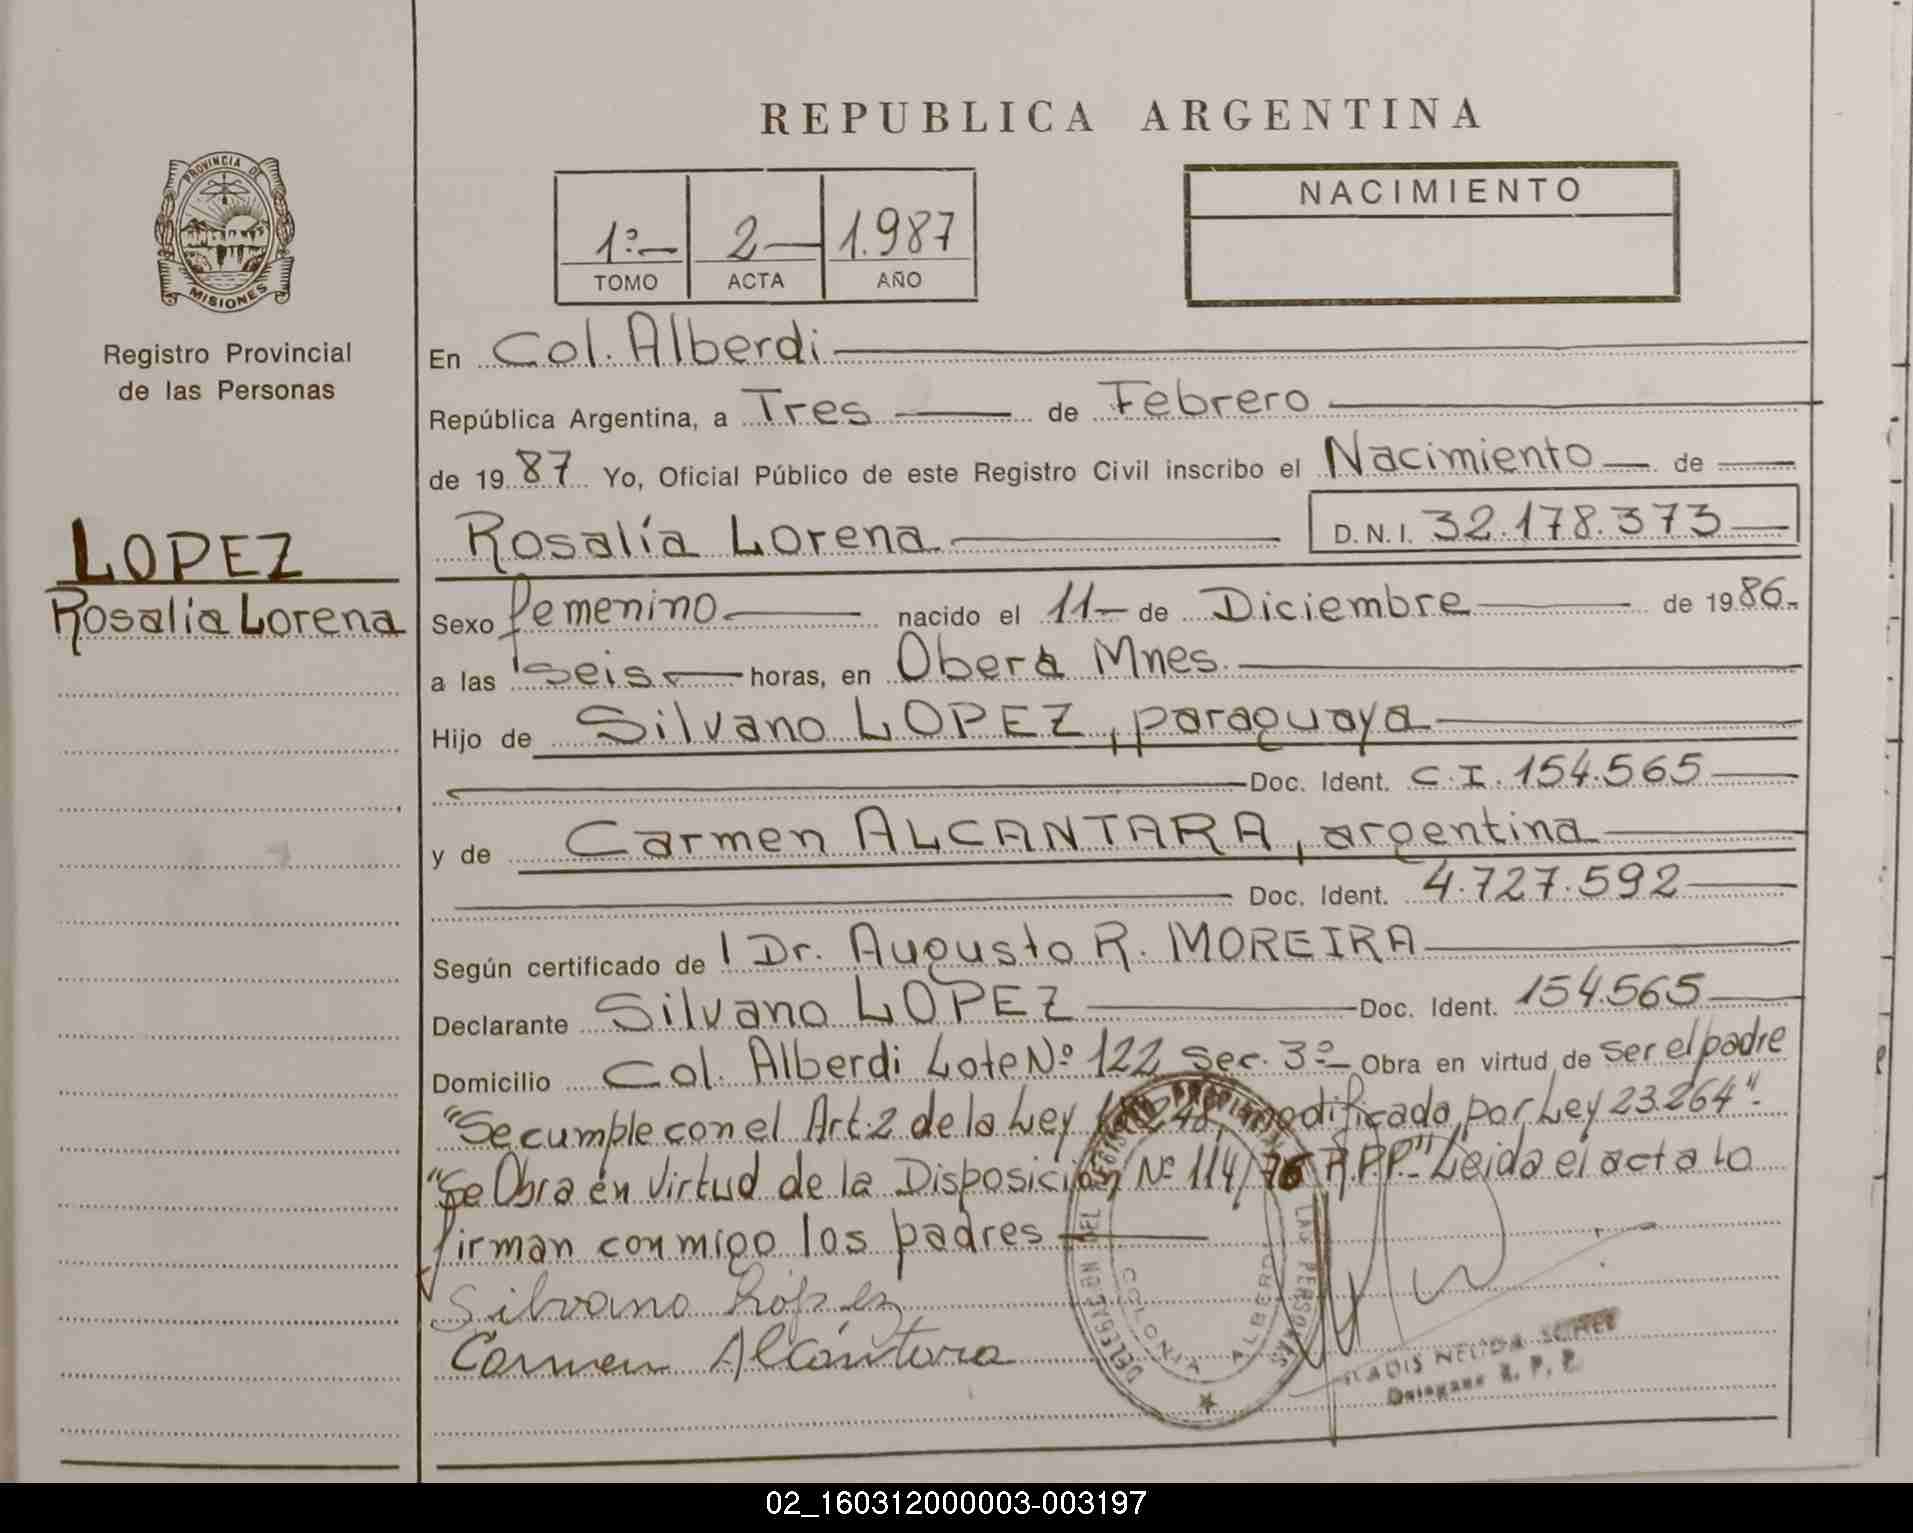 REPUBLICA ARGENTINA
PROVINCIA DE
MISIONES
Registro Provincial
de las Personas
LOPEZ
Rosalía Lorena
1º
2
1.987
TOMO
ACTA
AÑO
NACIMIENTO
En Col. Alberdi
República Argentina, a Tres de Febrero
de 19 87 Yo, Oficial Público de este Registro Civil inscribo el Nacimiento de
Rosalía Lorena D.N.I. 32.178.373
Sexo femenino nacido el 11 de Diciembre de 1986.-
a las seis horas, en Oberá Mnes.
Hijo de Silvano LOPEZ, paraguaya
Doc. Ident. C.I. 154.565
y de Carmen ALCANTARA, argentina
Doc. Ident. 4.727.592
Según certificado de Dr. Augusto R. MOREIRA
Declarante Silvano LOPEZ Doc. Ident. 154.565
Domicilio Col. Alberdi Lote Nº 122 Sec. 3º Obra en virtud de ser el padre
"Se cumple con el Art. 2 de la Ley modificado por Ley 23.264".
"Se Obra en virtud de la Disposición Nº 114/76 R.P.P." Leida el acta lo
firman conmigo los padres
Silvano López
Carmen Alcántara
DELEGACION DEL LAS PERSONAS
COLONIA ALBERDI
NELIDA
R. P. P.
02_160312000003-003197